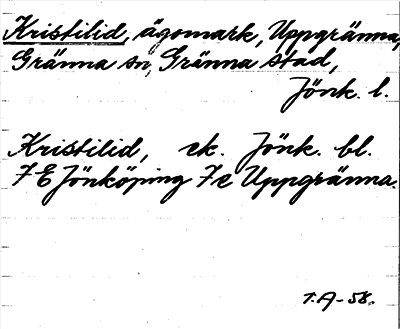 Kristilid, ägomark, Uppgränna,
Gränna sn, Gränna stad,
Jönk. l.
Kristilid, ek. Jönk. bl.
7 E Jönköping 7 e Uppgränna.
T.A-58.